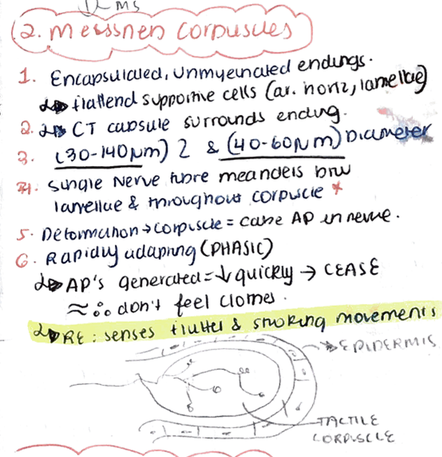 MS
2. Meissner Corpuscles
1. Encapsulated, Unmyelinated endings.
↳ flattend supportive cells (ar. horiz, lamellae)
2. ↳ CT capsule surrounds ending.
3. (30-140μm) L & (40-60μm) Diameter
4. Single Nerve fibre meanders b/w
lamellae & throughout corpuscle *
5. Deformation → corpuscle = cause AP in nerve.
6. Rapidly adapting (PHASIC)
↳ AP's generated = ↓ quickly → CEASE
≈ ∴ don't feel clothes.
↳ RE: senses flutter & stroking movements
→ EPIDERMIS
TACTILE
CORPUSCLE